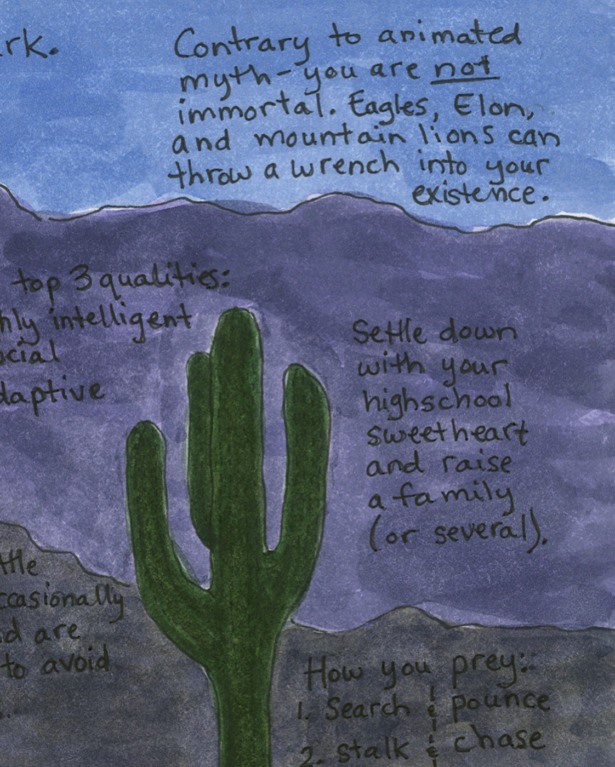 rk.
Contrary to animated
myth-you are not
immortal. Eagles, Elon,
and mountain lions can
throw a wrench into your
existence.
top 3 qualities:
hly intelligent
cial
daptive
Settle down
with your
highschool
sweetheart
and raise
a family
(or several).
ttle
ccasionally
d are
to avoid
How you prey:
1. Search & pounce
2. stalk & chase